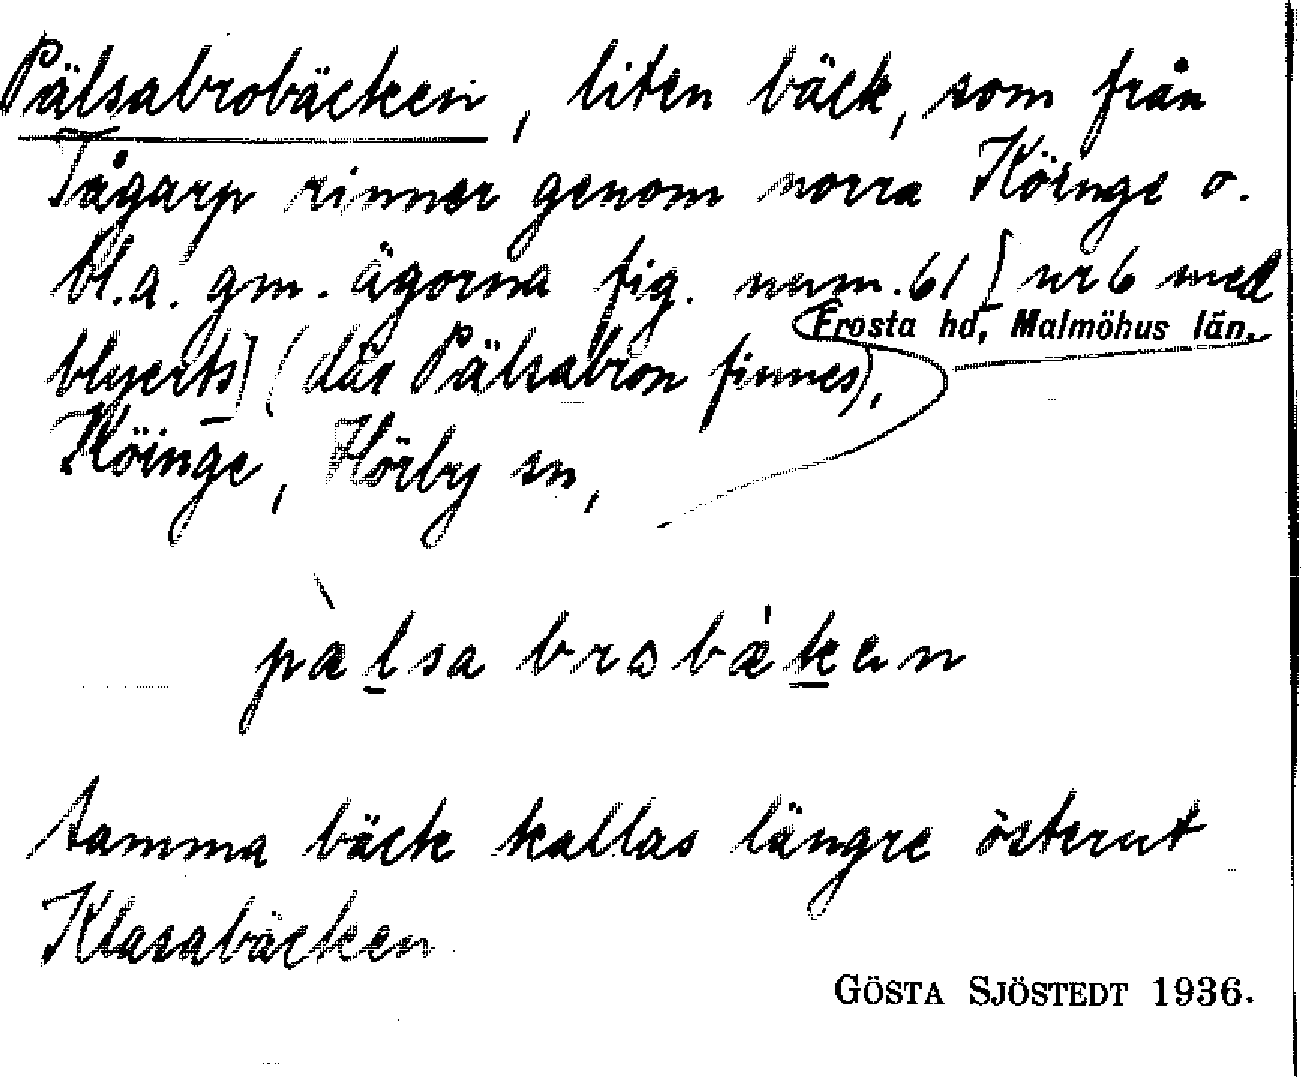 Pälsabrobäcken, liten bäck, som från
Tågarp rinner genom norra Köinge o.
bl.a. gm. ägorna fig. num. 61 [nr 6 med
Frosta hd, Malmöhus län.
blyerts] (där Pälsabron finnes),
Köinge, Hörby sn,
pàlsa brobækan
samma bäck kallas längre österut
Klasabäcken
GÖSTA SJÖSTEDT 1936.